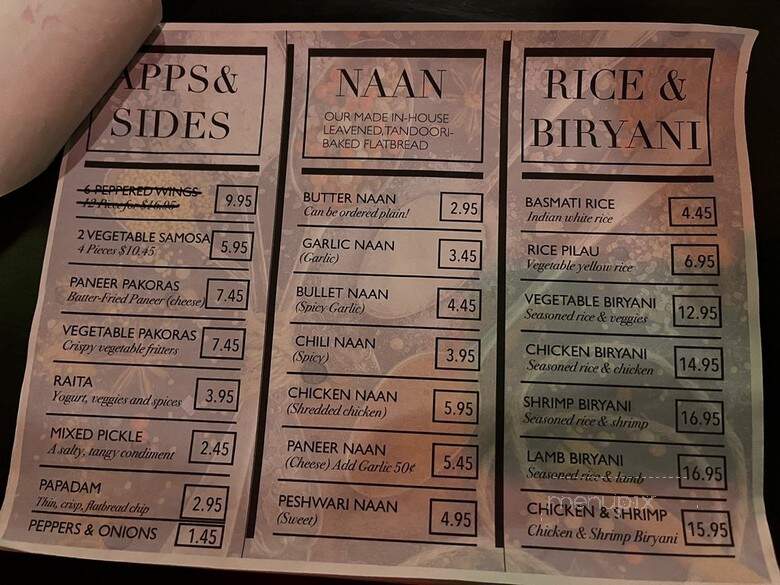 APPS &
SIDES
6 PEPPERED WINGS 9.95
12 Piece for $16.95
2 VEGETABLE SAMOSA 5.95
4 Pieces $10.45
PANEER PAKORAS 7.45
Batter-Fried Paneer (cheese)
VEGETABLE PAKORAS 7.45
Crispy vegetable fritters
RAITA 3.95
Yogurt, veggies and spices
MIXED PICKLE 2.45
A salty, tangy condiment
PAPADAM 2.95
Thin, crisp, flatbread chip
PEPPERS & ONIONS 1.45
NAAN
OUR MADE IN-HOUSE
LEAVENED, TANDOORI-
BAKED FLATBREAD
BUTTER NAAN 2.95
Can be ordered plain!
GARLIC NAAN 3.45
(Garlic)
BULLET NAAN 4.45
(Spicy Garlic)
CHILI NAAN 3.95
(Spicy)
CHICKEN NAAN 5.95
(Shredded chicken)
PANEER NAAN 5.45
(Cheese) Add Garlic 50¢
PESHWARI NAAN 4.95
(Sweet)
RICE &
BIRYANI
BASMATI RICE 4.45
Indian white rice
RICE PILAU 6.95
Vegetable yellow rice
VEGETABLE BIRYANI 12.95
Seasoned rice & veggies
CHICKEN BIRYANI 14.95
Seasoned rice & chicken
SHRIMP BIRYANI 16.95
Seasoned rice & shrimp
LAMB BIRYANI 16.95
Seasoned rice & lamb
menupix
CHICKEN & SHRIMP 15.95
Chicken & Shrimp Biryani